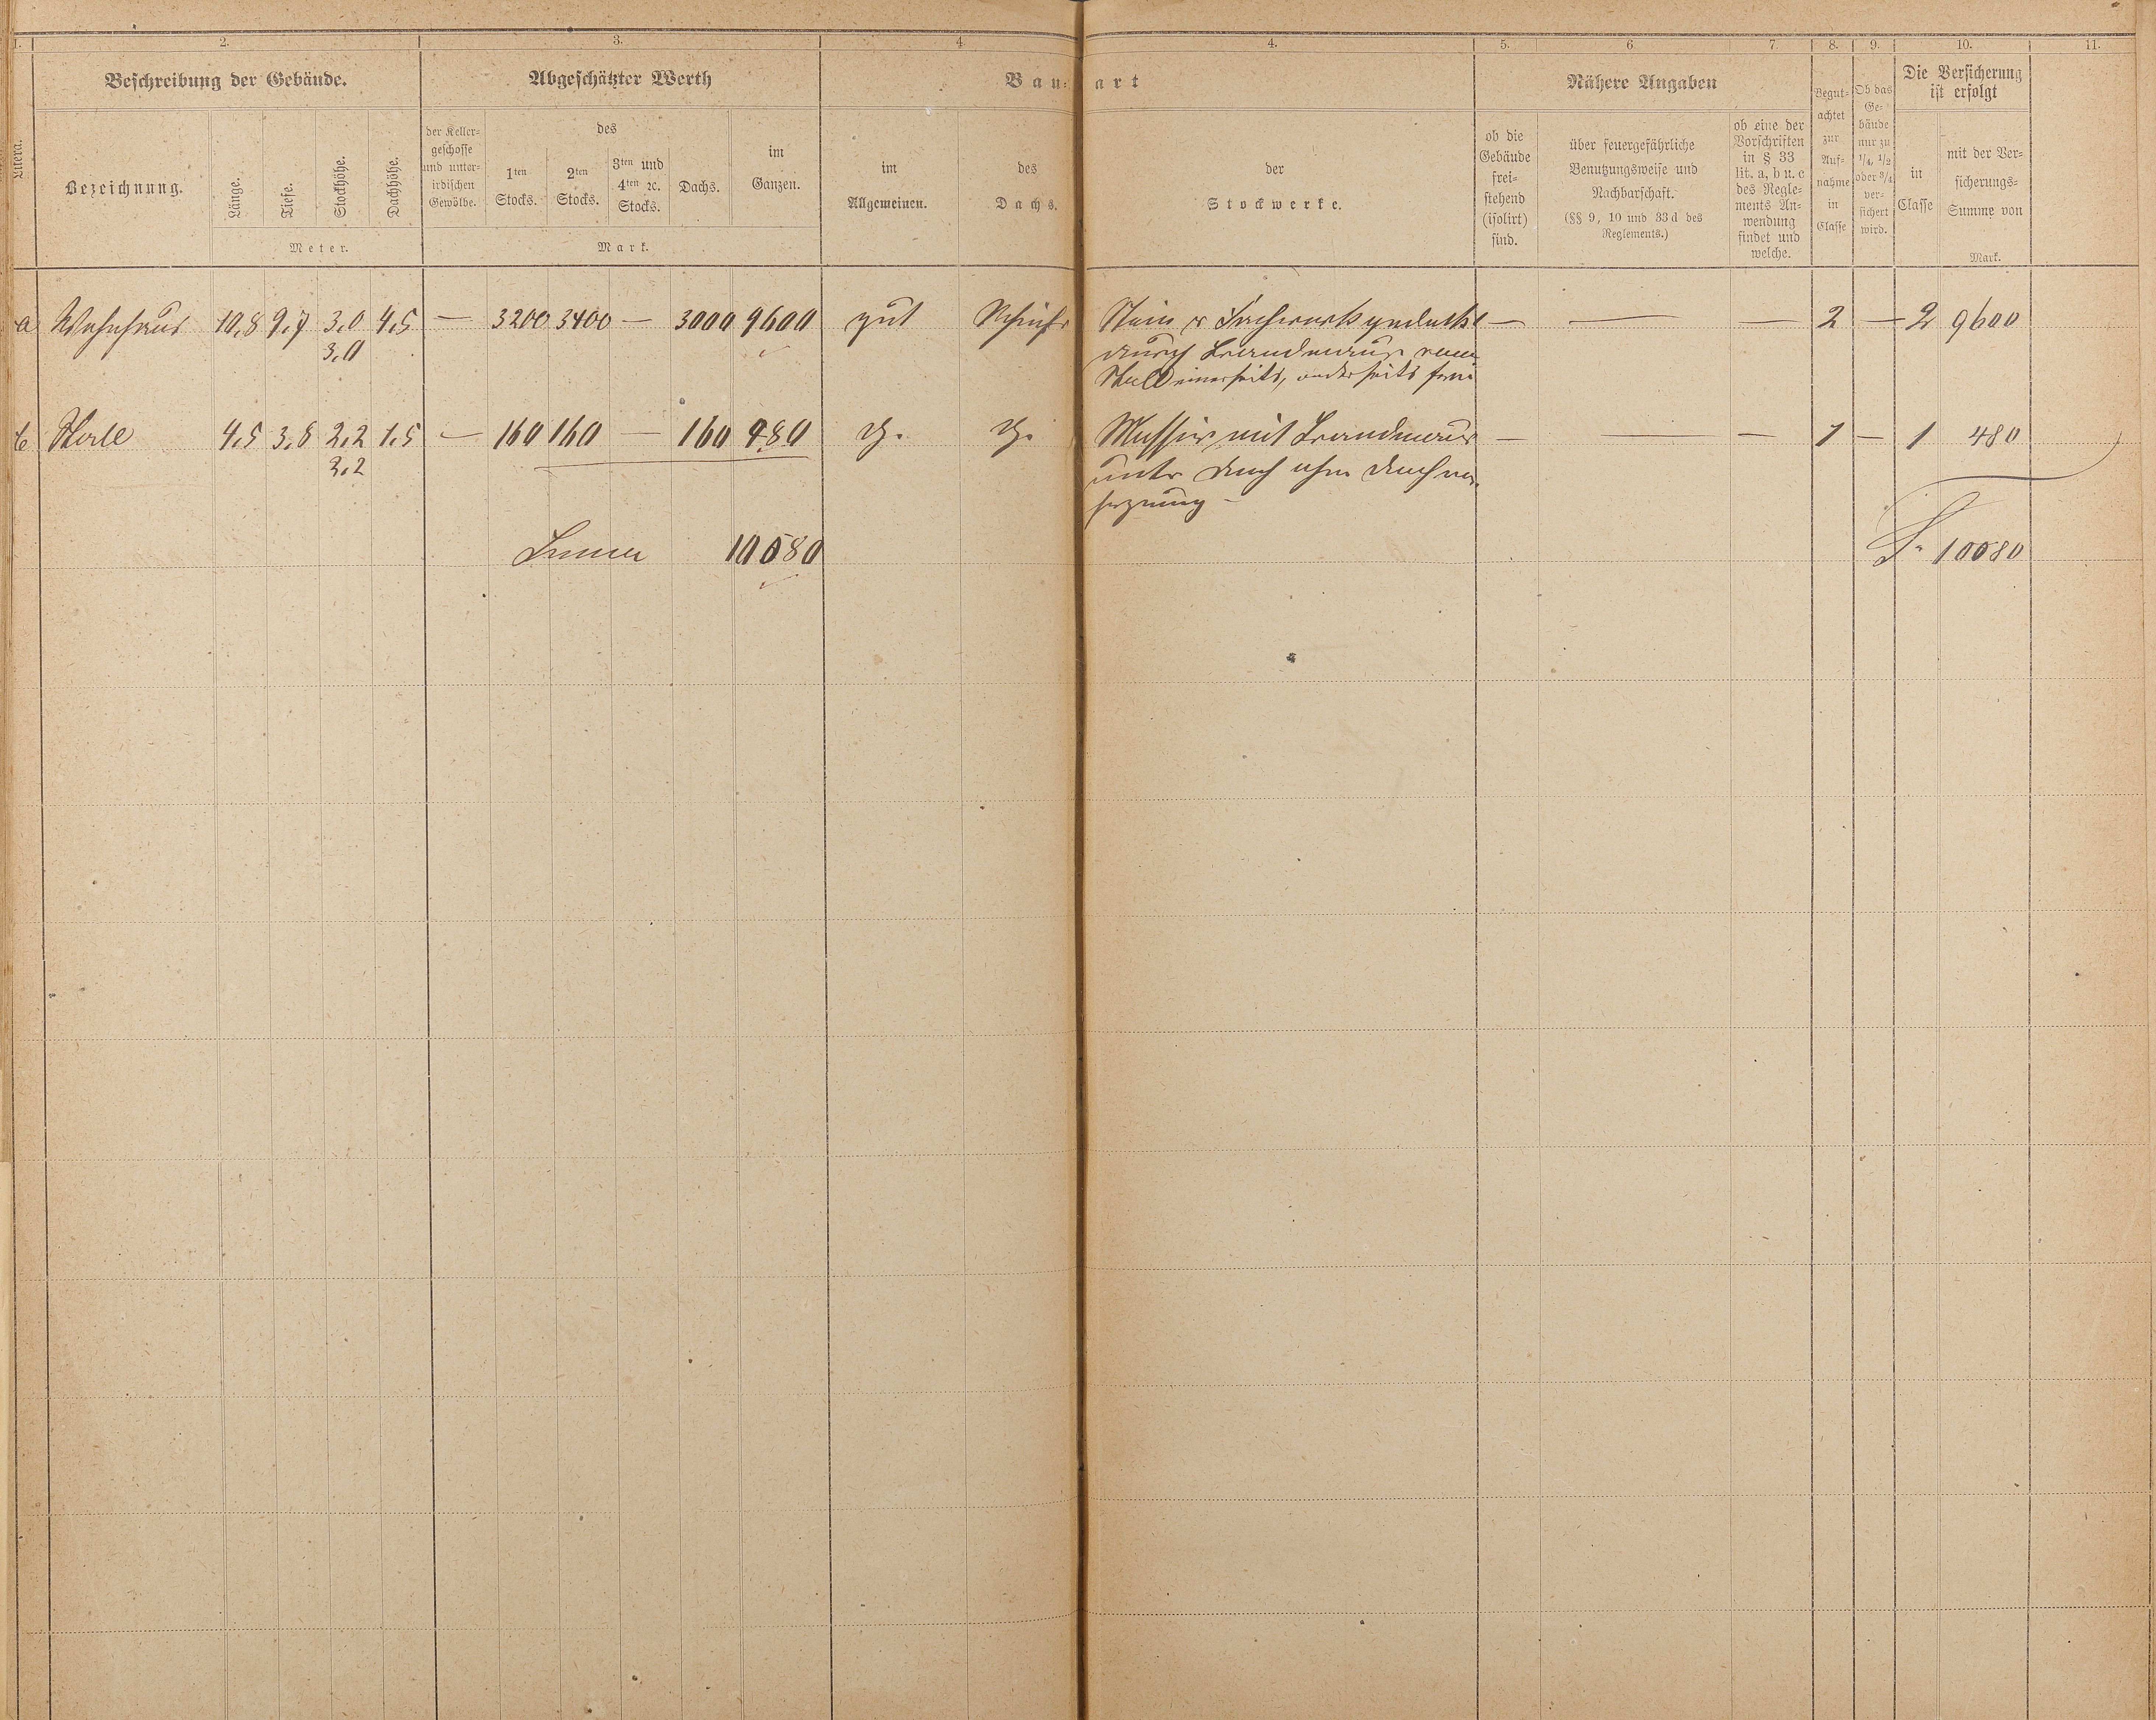 1. 2. 3. 4. 4. 5. 6. 7. 8. 9. 10. 11.
Littera.
Beschreibung der Gebäude.
Bezeichnung.
Länge.
Tiefe.
Stockhöhe.
Dachhöhe.
Meter.
Abgeschätzter Werth
der Keller-
geschosse
und unter-
irdischen
Gewölbe.
des
1ten
Stocks.
2ten
Stocks.
3ten und
4ten ꝛc.
Stocks.
Dachs.
im
Ganzen.
Mark.
Bau-art
im
Allgemeinen.
des
Dachs.
der
Stockwerke.
Nähere Angaben
ob die
Gebäude
frei-
stehend
(isolirt)
sind.
über feuergefährliche
Benutzungsweise und
Nachbarschaft.
(§§ 9, 10 und 33 d des
Reglements.)
ob eine der
Vorschriften
in § 33
lit. a, b u. c
des Regle-
ments An-
wendung
findet und
welche.
Begut-
achtet
zur
Auf-
nahme
in
Classe
Ob das
Ge-
bäude
nur zu
1/4, 1/2
oder 3/4
ver-
sichert
wird.
Die Versicherung
ist erfolgt
in
Classe
mit der Ver-
sicherungs-
Summe von
Mark.
a Wohnhaus 10,8 9,7 3,0 4,5 — 3200 3400 — 3000 9600 gut Schiefr Stein u Fachwerk gedeckt — — — 2 — 2 9600
3,0 durch Brandmaur vom
Stall einerseits, anderseits frei
b Stall 4,5 3,8 2,2 1,5 — 160 160 — 160 480 Massiv mit Brandmaur — — — 1 — 1 480
2,2 unter Dach ohne Dachvor-
Summa 10080 S. 10080